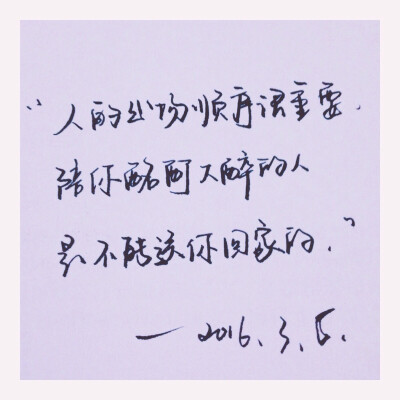 “人的出场顺序很重要.
陪你酩酊大醉的人
是不能送你回家的.”
— 2016. 3. 5.